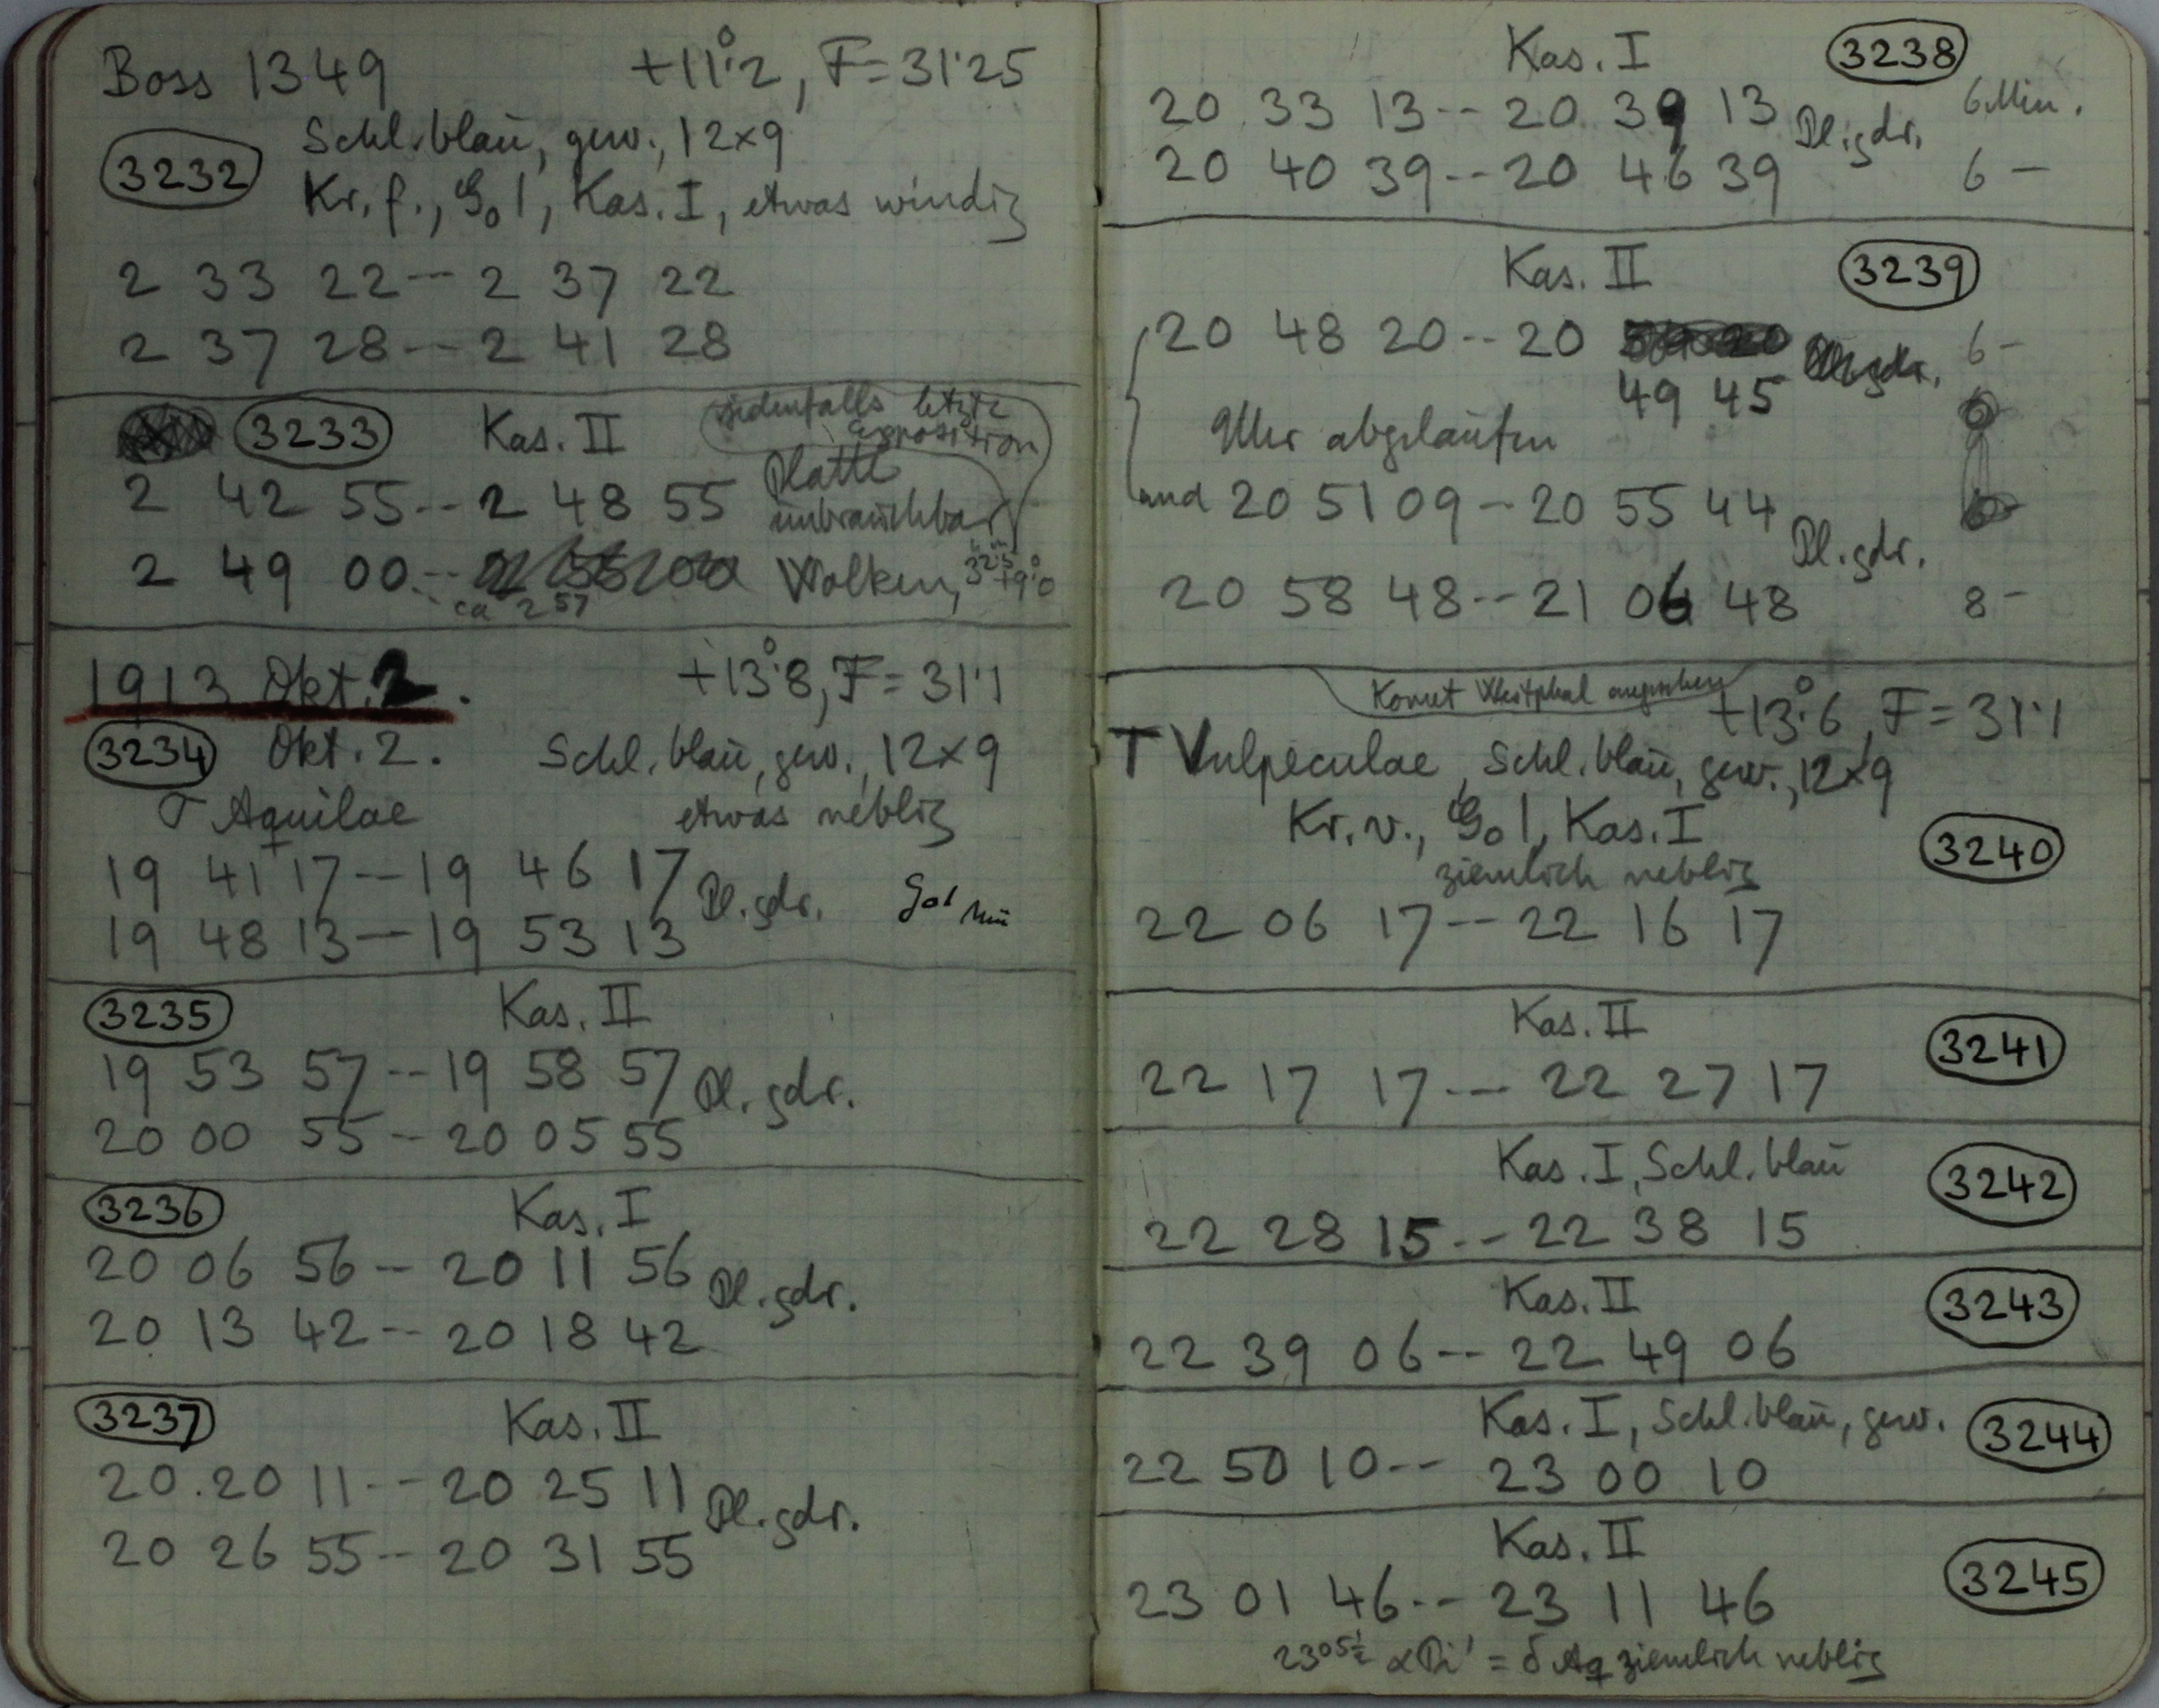 Boss 1349 +11°.2, F=31.25
Schl. blau, gew., 12×9
3232
Kr. f., G₀ 1, Kas. I, etwas windig
2 33 22 -- 2 37 22
2 37 28 -- 2 41 28
3233 Kas. II jedenfalls letzte Exposition
2 42 55 -- 2 48 55 Platte unbrauchbar
2 49 00 -- ca 2 57 Wolken, +9°.0
1913 Okt. 2. +13°.8, F=31.1
3234 Okt. 2. Schl. blau, gew., 12×9
Aquilae etwas neblig
19 41 17 -- 19 46 17
Pl. gdr.
19 48 13 -- 19 53 13
3235 Kas. II
19 53 57 -- 19 58 57 Pl. gdr.
20 00 55 -- 20 05 55
3236 Kas. I
20 06 56 -- 20 11 56 Pl. gdr.
20 13 42 -- 20 18 42
3237 Kas. II
20 20 11 -- 20 25 11 Pl. gdr.
20 26 55 -- 20 31 55
Kas. I 3238
20 33 13 -- 20 39 13 Pl. gdr. 6 Min.
20 40 39 -- 20 46 39 6 -
Kas. II 3239
20 48 20 -- 20 49 45 6 -
Uhr abgelaufen
und 20 51 09 -- 20 55 44
Pl. gdr.
20 58 48 -- 21 06 48 8 -
Komet Westphal angesehen
+13°.6, F=31.1
T Vulpeculae, Schl. blau, gew., 12×9
Kr. v., G₀ 1, Kas. I 3240
ziemlich neblig
22 06 17 -- 22 16 17
Kas. II 3241
22 17 17 -- 22 27 17
Kas. I, Schl. blau 3242
22 28 15 -- 22 38 15
Kas. II 3243
22 39 06 -- 22 49 06
Kas. I, Schl. blau, gew. 3244
22 50 10 -- 23 00 10
Kas. II 3245
23 01 46 -- 23 11 46
ziemlich neblig